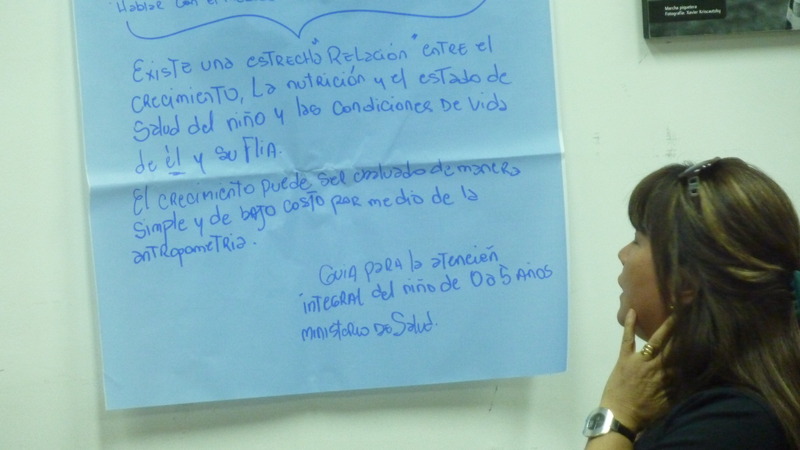 Hablar con el
Existe una estrecha "Relación" entre el
crecimiento, La nutrición y el estado de
salud del niño y las condiciones de vida
de él y su Flia.
El crecimiento puede ser evaluado de manera
simple y de bajo costo por medio de la
antropometria.
Guia para la atención
integral del niño de 0 a 5 años
ministerio de Salud.
Marcha piquetera
Fotografía: